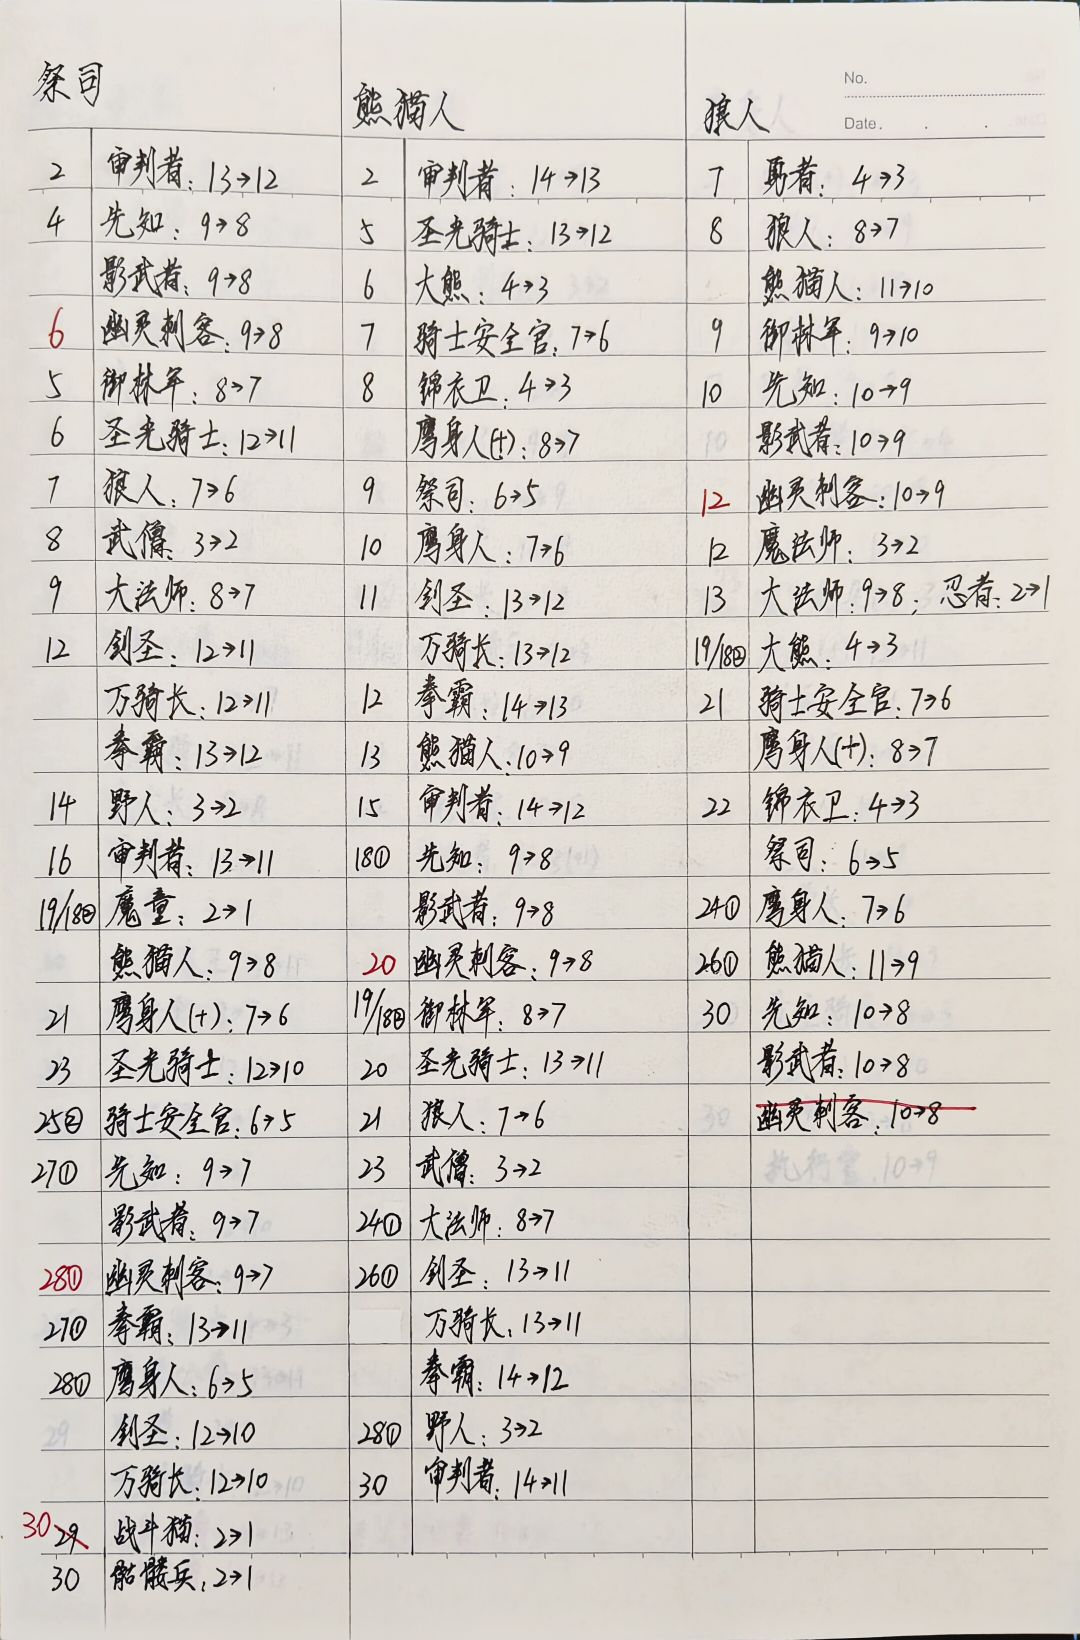 祭司
2 审判者：13→12
4 先知：9→8
影武者：9→8
6 幽灵刺客：9→8
5 御林军：8→7
6 圣光骑士：12→11
7 狼人：7→6
8 武僧：3→2
9 大法师：8→7
12 剑圣：12→11
万骑长：12→11
拳霸：13→12
14 野人：3→2
16 审判者：13→11
19/18② 魔童：2→1
熊猫人：9→8
21 鹰身人(+)：7→6
23 圣光骑士：12→10
25② 骑士安全官：6→5
27① 先知：9→7
影武者：9→7
28① 幽灵刺客：9→7
27① 拳霸：13→11
28① 鹰身人：6→5
29 剑圣：12→10
万骑长：12→10
30 29 战斗猫：2→1
30 骷髅兵：2→1
熊猫人
2 审判者：14→13
5 圣光骑士：13→12
6 大熊：4→3
7 骑士安全官：7→6
8 锦衣卫：4→3
鹰身人(+)：8→7
9 祭司：6→5
10 鹰身人：7→6
11 剑圣：13→12
万骑长：13→12
12 拳霸：14→13
13 熊猫人：10→9
15 审判者：14→12
18① 先知：9→8
影武者：9→8
20 幽灵刺客：9→8
19/18② 御林军：8→7
20 圣光骑士：13→11
21 狼人：7→6
23 武僧：3→2
24① 大法师：8→7
26① 剑圣：13→11
万骑长：13→11
拳霸：14→12
28① 野人：3→2
30 审判者：14→11
No.
Date.
狼人
7 勇者：4→3
8 狼人：8→7
熊猫人：11→10
9 御林军：9→10
10 先知：10→9
影武者：10→9
12 幽灵刺客：10→9
12 魔法师：3→2
13 大法师：9→8；忍者：2→1
19/18② 大熊：4→3
21 骑士安全官：7→6
鹰身人(+)：8→7
22 锦衣卫：4→3
祭司：6→5
24① 鹰身人：7→6
26① 熊猫人：11→9
30 先知：10→8
影武者：10→8
30 幽灵刺客：10→8
执行官：10→9